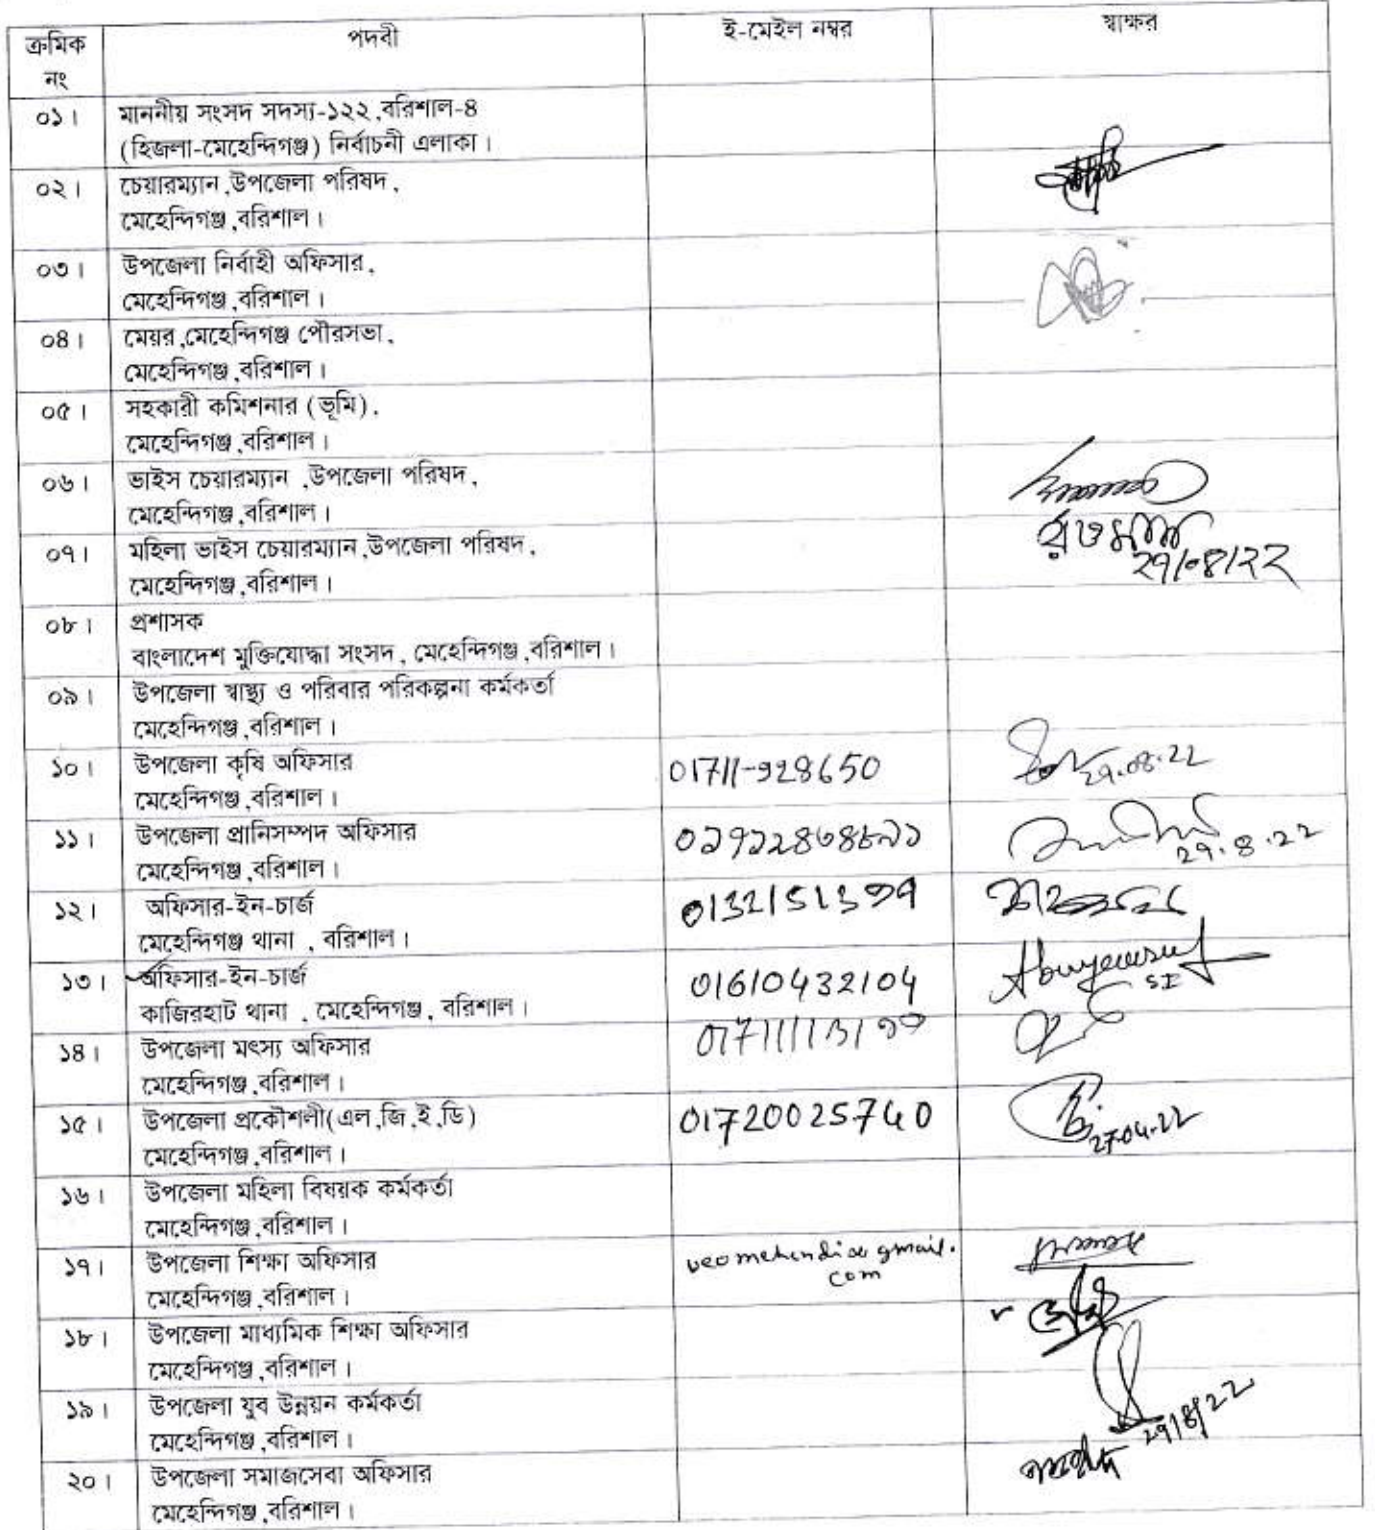 ক্রমিক
নং
পদবী
ই-মেইল নম্বর
স্বাক্ষর
০১।
মাননীয় সংসদ সদস্য-১২২,বরিশাল-৪
(হিজলা-মেহেন্দিগঞ্জ) নির্বাচনী এলাকা।
০২।
চেয়ারম্যান,উপজেলা পরিষদ,
মেহেন্দিগঞ্জ,বরিশাল।
০৩।
উপজেলা নির্বাহী অফিসার,
মেহেন্দিগঞ্জ,বরিশাল।
০৪।
মেয়র,মেহেন্দিগঞ্জ পৌরসভা,
মেহেন্দিগঞ্জ,বরিশাল।
০৫।
সহকারী কমিশনার (ভূমি),
মেহেন্দিগঞ্জ,বরিশাল।
০৬।
ভাইস চেয়ারম্যান ,উপজেলা পরিষদ,
মেহেন্দিগঞ্জ,বরিশাল।
০৭।
মহিলা ভাইস চেয়ারম্যান,উপজেলা পরিষদ,
মেহেন্দিগঞ্জ,বরিশাল।
২৭/০৪/২২
০৮।
প্রশাসক
বাংলাদেশ মুক্তিযোদ্ধা সংসদ, মেহেন্দিগঞ্জ,বরিশাল।
০৯।
উপজেলা স্বাস্থ্য ও পরিবার পরিকল্পনা কর্মকর্তা
মেহেন্দিগঞ্জ,বরিশাল।
১০।
উপজেলা কৃষি অফিসার
মেহেন্দিগঞ্জ,বরিশাল।
২৭.০৪.২২
১১।
উপজেলা প্রানিসম্পদ অফিসার
মেহেন্দিগঞ্জ,বরিশাল।
২৭.৪.২২
১২।
অফিসার-ইন-চার্জ
মেহেন্দিগঞ্জ থানা , বরিশাল।
১৩।
অফিসার-ইন-চার্জ
কাজিরহাট থানা , মেহেন্দিগঞ্জ, বরিশাল।
01610432104
SI
১৪।
উপজেলা মৎস্য অফিসার
মেহেন্দিগঞ্জ,বরিশাল।
১৫।
উপজেলা প্রকৌশলী(এল,জি,ই,ডি)
মেহেন্দিগঞ্জ,বরিশাল।
01720025740
27.04.22
১৬।
উপজেলা মহিলা বিষয়ক কর্মকর্তা
মেহেন্দিগঞ্জ,বরিশাল।
১৭।
উপজেলা শিক্ষা অফিসার
মেহেন্দিগঞ্জ,বরিশাল।
gmail.
com
১৮।
উপজেলা মাধ্যমিক শিক্ষা অফিসার
মেহেন্দিগঞ্জ,বরিশাল।
১৯।
উপজেলা যুব উন্নয়ন কর্মকর্তা
মেহেন্দিগঞ্জ,বরিশাল।
২৭/৪/২২
২০।
উপজেলা সমাজসেবা অফিসার
মেহেন্দিগঞ্জ,বরিশাল।